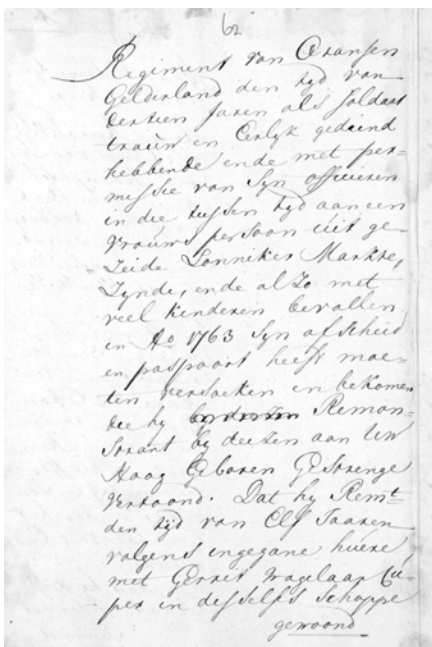 62
Regiment van Oranjen
Gelderland den tyd van
dertien Jaren als Soldaat
trauw en Eerlyk gediend
hebbende ende met per-
messie van Syn officieren
in die tussen tyd aan een
Vrouws persoon uit ge-
Zeide Lonniker Markte,
Zynde, ende al Zo met
veel kinderen bevallen
in Ao 1763 Syn afscheid
en paspoort heeft moe-
ten versoeken en bekomen
die hy Remon-
strant by deezen aan UW
Hoog Geboren Gestrenge
Vertoond. Dat hy Remt
den tyd van Elf Jaaren
volgens ingegane huere
met Gerret Wagelaar Cu-
per in desselfs Schoppe
gewoond